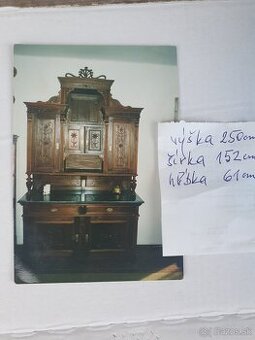 výška 250cm
šírka 152cm
hĺbka 61cm
Bazos.sk